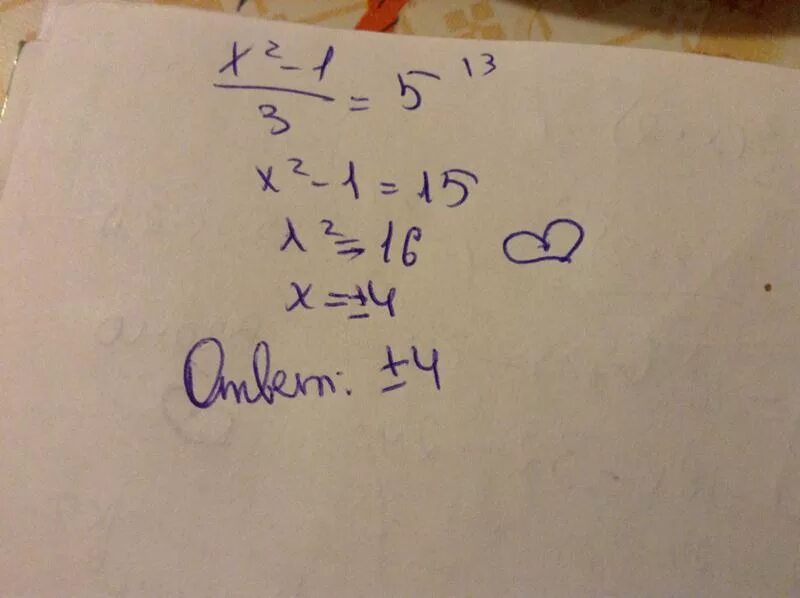 x²-1
3 = 5 |3
x²-1=15
x²=16
x=±4
Ответ: ±4